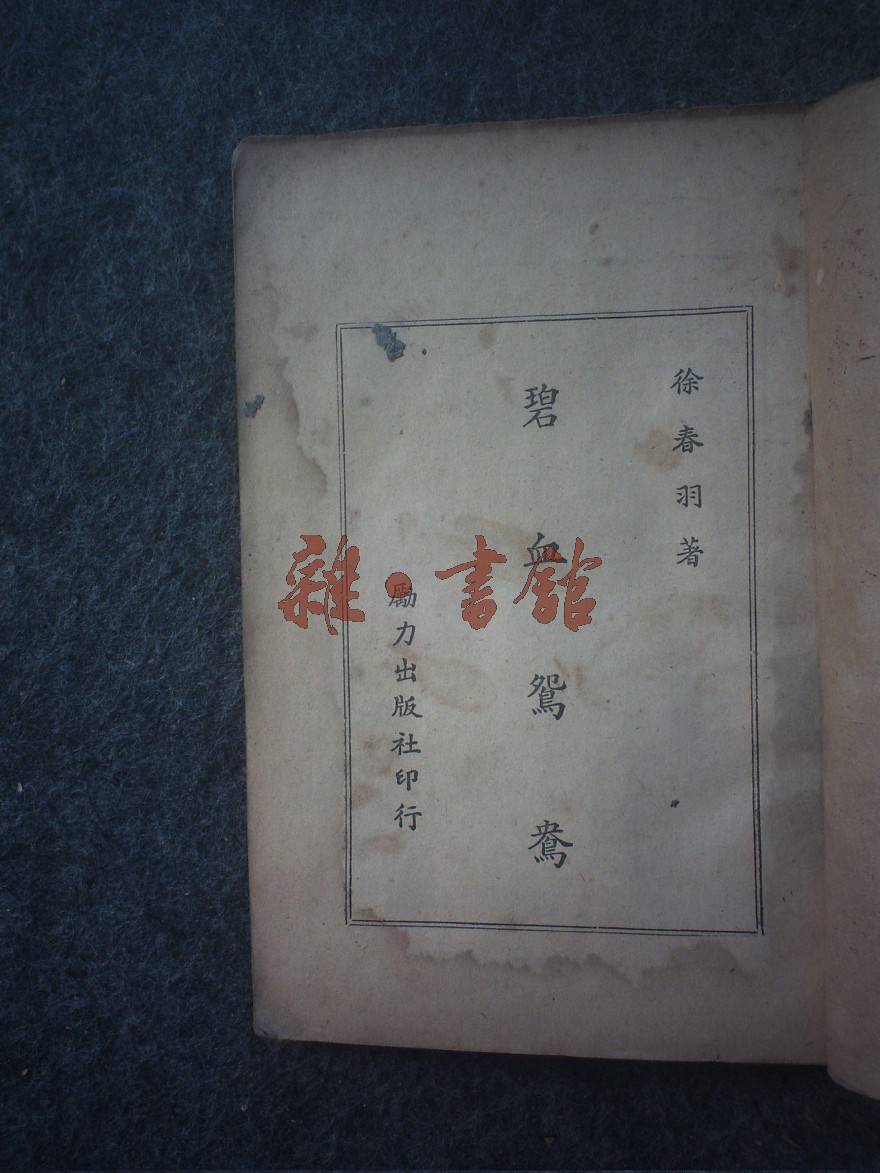 徐春羽著
碧血鴛鴦
勵力出版社印行
雜·書館